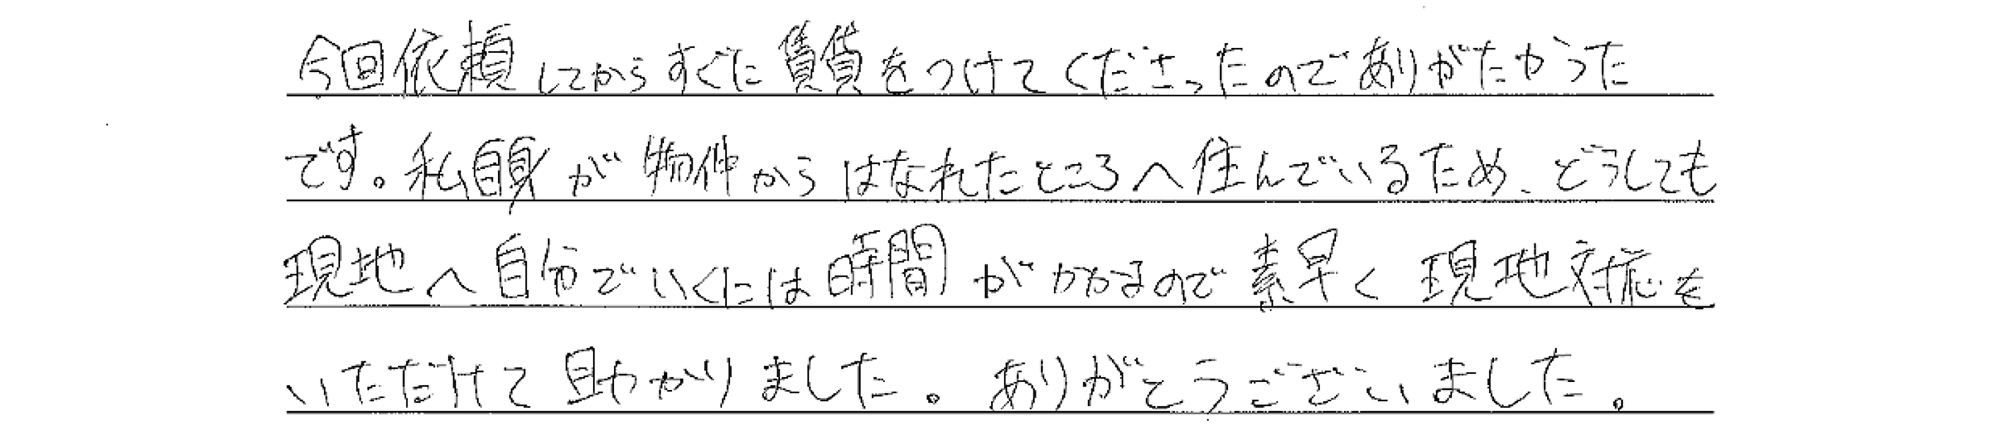 今回依頼してからすぐに賃貸をつけてくださったのでありがたかった
です。私自身が物件からはなれたところへ住んでいるため、どうしても
現地へ自分でいくには時間がかかるので素早く現地対応を
いただけて助かりました。ありがとうございました。